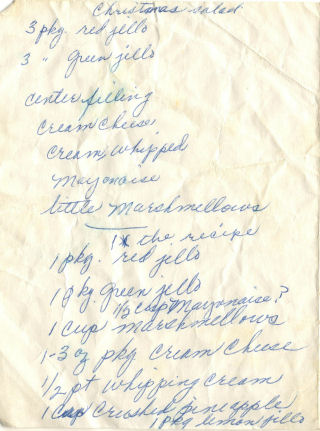 Christmas salad
3 pkg. red jello
3 " green jello
center filling
cream cheese
cream, whipped
Mayonaise
little Marshmellows
1 x the recipe
1 pkg. red jello
1 pkg. green jello
1/2 cup Mayonaise?
1 cup marshmellows
1-3 oz pkg cream cheese
1/2 pt whipping cream
1 cup crushed pineapple
1 pkg lemon jello